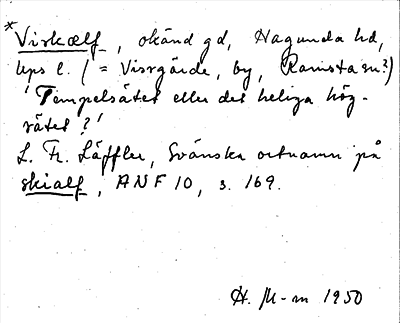 *Viskælf, okänd gd, Hagunda hd,
Upps l. (= Visrgärde, by, Ramsta sn?)
'Tempelsätet eller det heliga hög-
sätet?'
L. Fr. Läffler, Svänska ortnamn på
skialf, ANF 10, s. 169.
H. M-m 1950